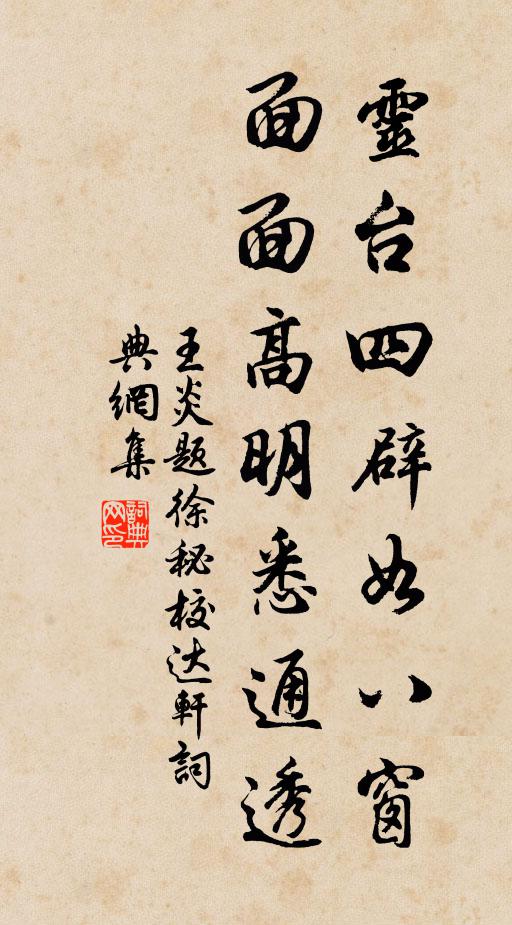 靈台四辟如八窗
面面高明悉通透
王炎題徐秘校达軒詞
典網集
詞典网印